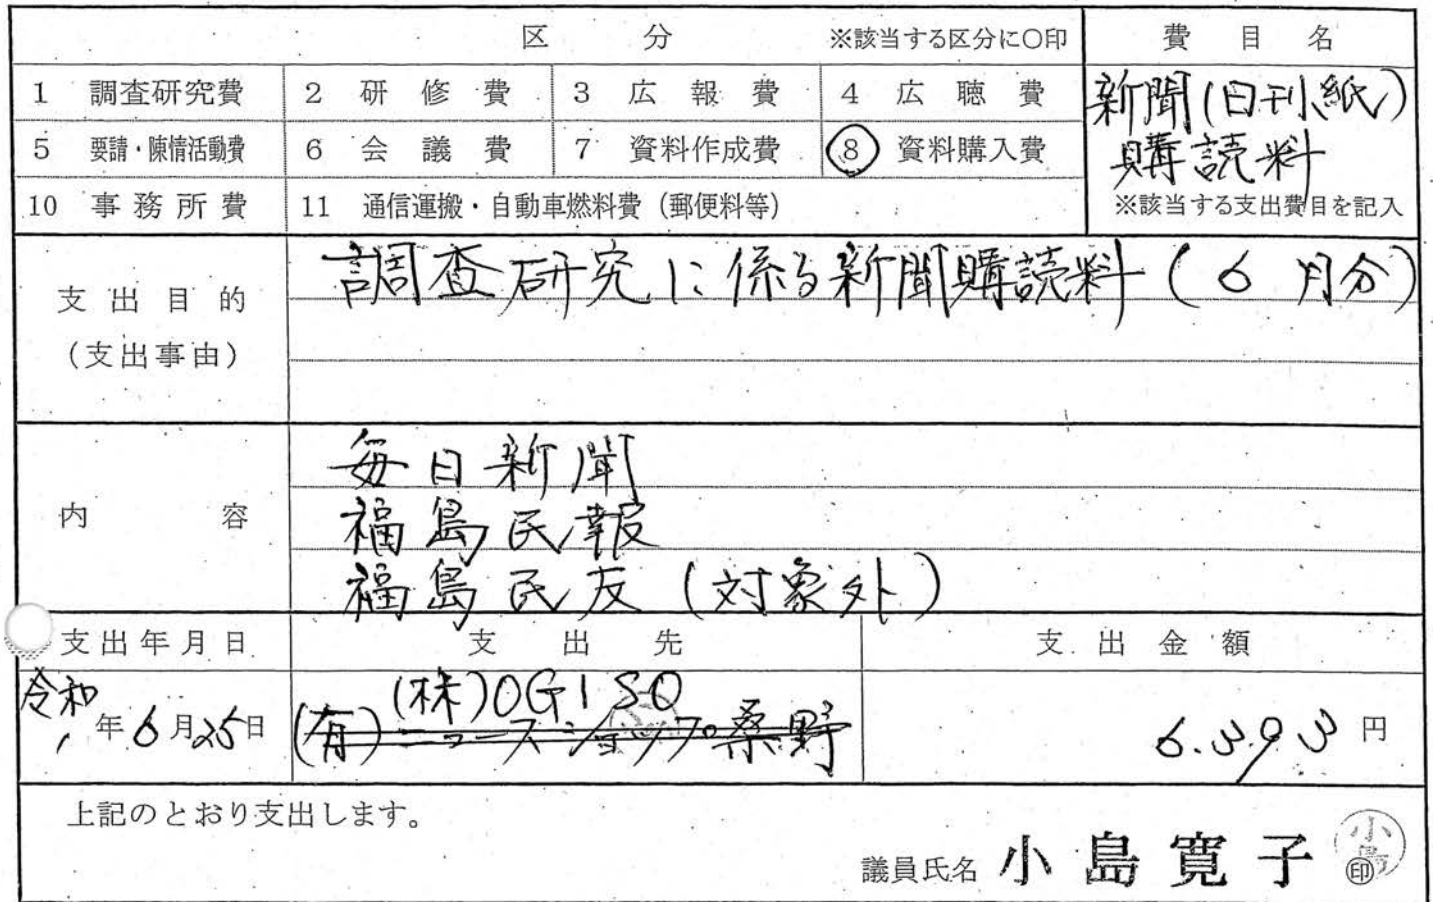 区 分 ※該当する区分に○印 費目名
1 調査研究費 2 研修費 3 広報費 4 広聴費 新聞(日刊紙)
5 要請・陳情活動費 6 会議費 7 資料作成費 8 資料購入費 購読料
10 事務所費 11 通信運搬・自動車燃料費（郵便料等） ※該当する支出費目を記入
支出目的 調査研究に係る新聞購読料(6月分)
（支出事由）
毎日新聞
内容 福島民報
福島民友(対象外)
支出年月日 支出先 支出金額
令和 (株)OGISO
1年6月25日 (有)ニュースショップ桑野 6.393円
上記のとおり支出します。
議員氏名 小島寛子 ㊞
小島